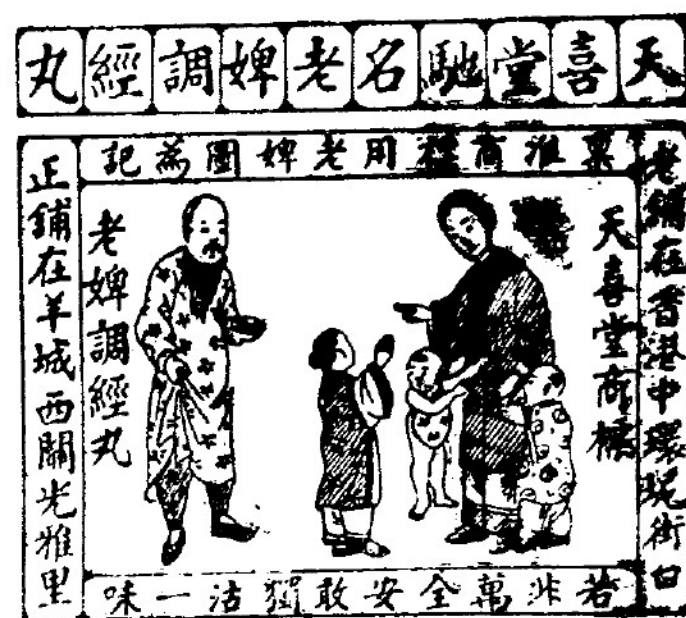 天喜堂馳名老婢調經丸
稟准商標用老婢圖為記
老鋪在香港中環街
天喜堂商標
老婢調經丸
正鋪在羊城西關光雅里
若非萬全安敢獨沽一味